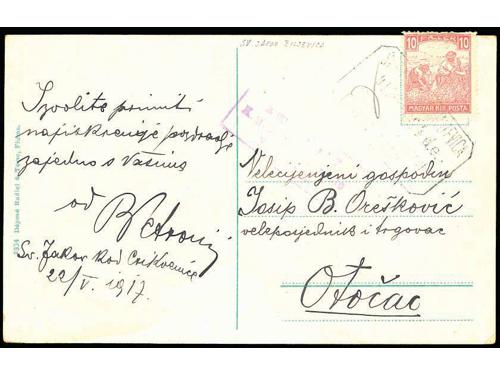 SV. JAKOV ŠILJEVICA
10 FILLÉR 10
MAGYAR KIR. POSTA
Izvolite primiti
najiskrenije pozdrave
zajedno s Vašima
od
Sv. Jakov kod Crikvenice
22/V. 1917.
Velecijenjeni gospodin
Josip B. Orešković
veleposjednik i trgovac
Otočac